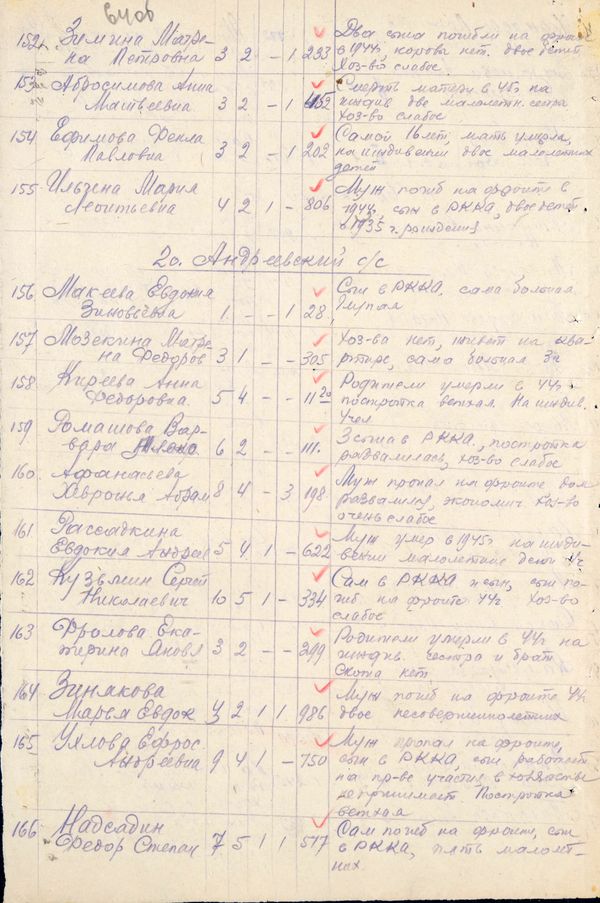 152. Зимина Матре- 3 2 - 1 233 Два сына погибли на фронте
на Петровна в 1944г, коровы нет. двое детей
Хоз-во слабое
153 Абросимова Анна 3 2 - 1 452 Смерть матери в 45г на
Матвеевна иждив две малолетн. сестра
Хоз-во слабое
154 Ефимова Фекла 3 2 - 1 202 Самой 16лет, мать умерла,
Павловна на иждивении двое малолетних
детей
155 Ильзена Мария 4 2 1 - 806 Муж погиб на фронте в
Леонтьевна 1944г, сын в РККА, двое детей
с 1935 г. рождения
20. Андреевский с/с
156 Макеева Евдокия 1 - - 1 28 Сын в РККА. сама больная
Зиновьевна глупая
157 Мозекина Матре 3 1 - - 305 Хоз-ва нет, живет на ква-
на Федоров ртире, сама больная 3ч
158 Киреева Анна 5 4 - - 1120 Родители умерли в 44г -
Федоровна. постройка ветхая. На иждив.
4чел
159 Ромашова Вар- 6 2 - - 111. 3 сына в РККА., постройка
вара развалилась, хоз-во слабое
160. Афанасьева 8 4 - 3 198 Муж пропал на фронте дом
Хевронья Абрам развалился, экономич хоз-во
очень слабое
161 Рассадкина 5 4 1 - 622 Муж умер в 1945г на ижди-
Евдокия Андрее вении малолетние дети 4ч
162 Кузьмин Сергей 10 5 1 - 334 Сам в РККА и сын, сын по-
Николаевич гиб на фронте 44г Хоз-во
слабое
163 Фролова Ека- 3 2 - - 299 Родители умерли в 44г на
терина Яковл иждив. сестра и брат
Скота нет
164 Зинакова 4 2 1 1 986 Муж погиб на фронте 44г
Марья Евдок двое несовершеннолетних
165 Ухлова Ефрос. 9 4 1 - 750 Муж пропал на фронте,
Андреевна сын в РККА, сын работает
на пр-ве участия в хозяйстве
не принимает Постройка
ветхая
166 Надсадин 7 5 1 1 517 Сам погиб на фронте, сын
Федор Степан в РККА, пять малолет-
них.